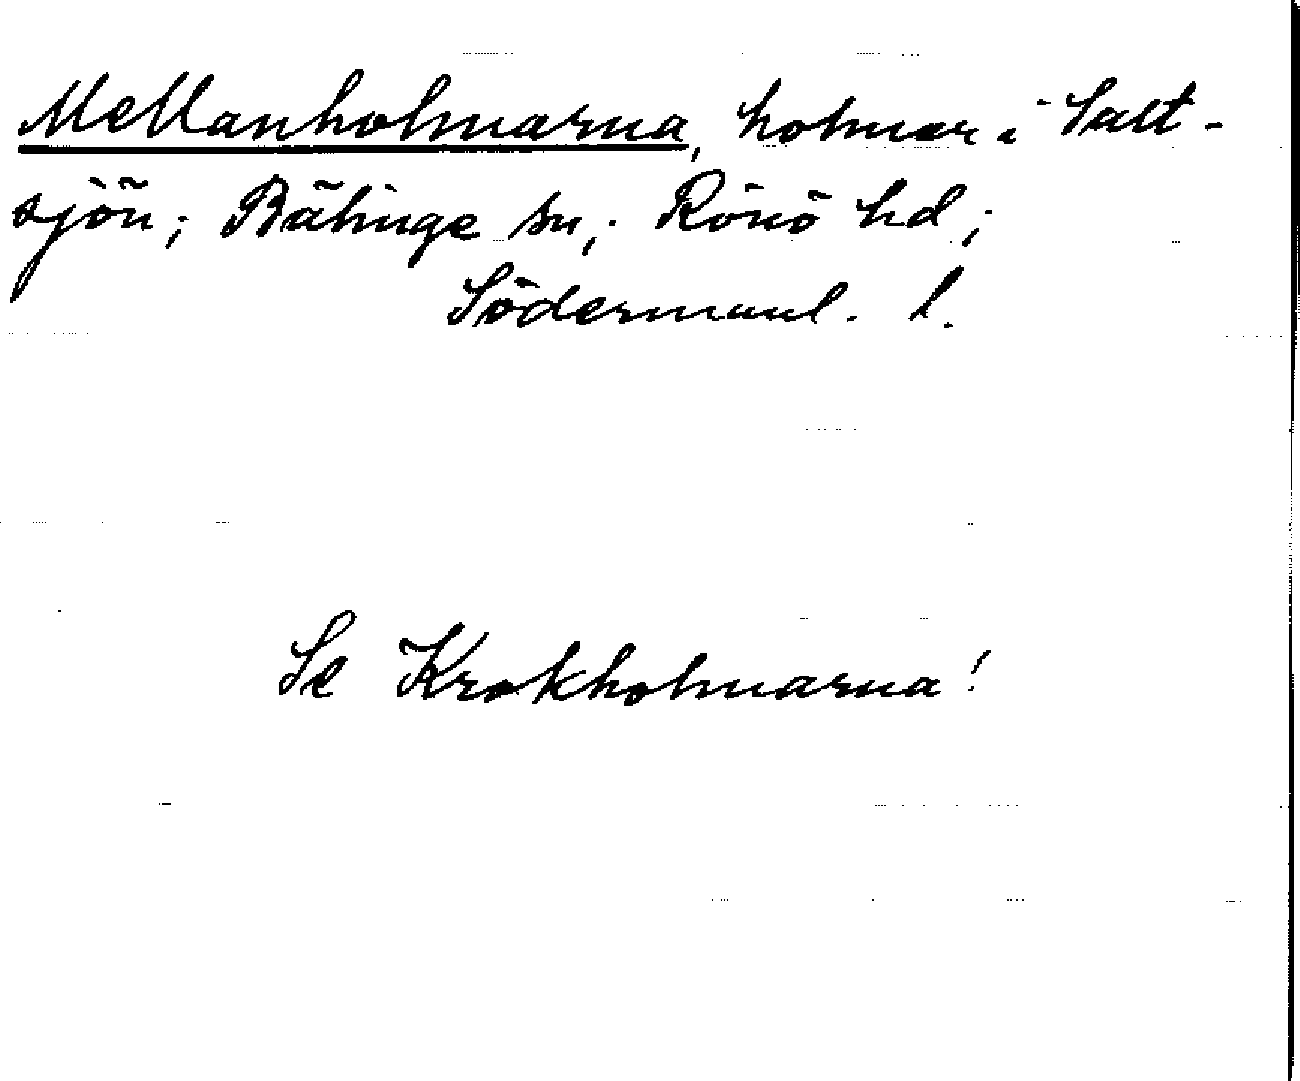 Mellanholmarna, holmar i Salt-
sjön; Bälinge sn; Rönö hd;
Södermanl. l.
Se Krokholmarna!